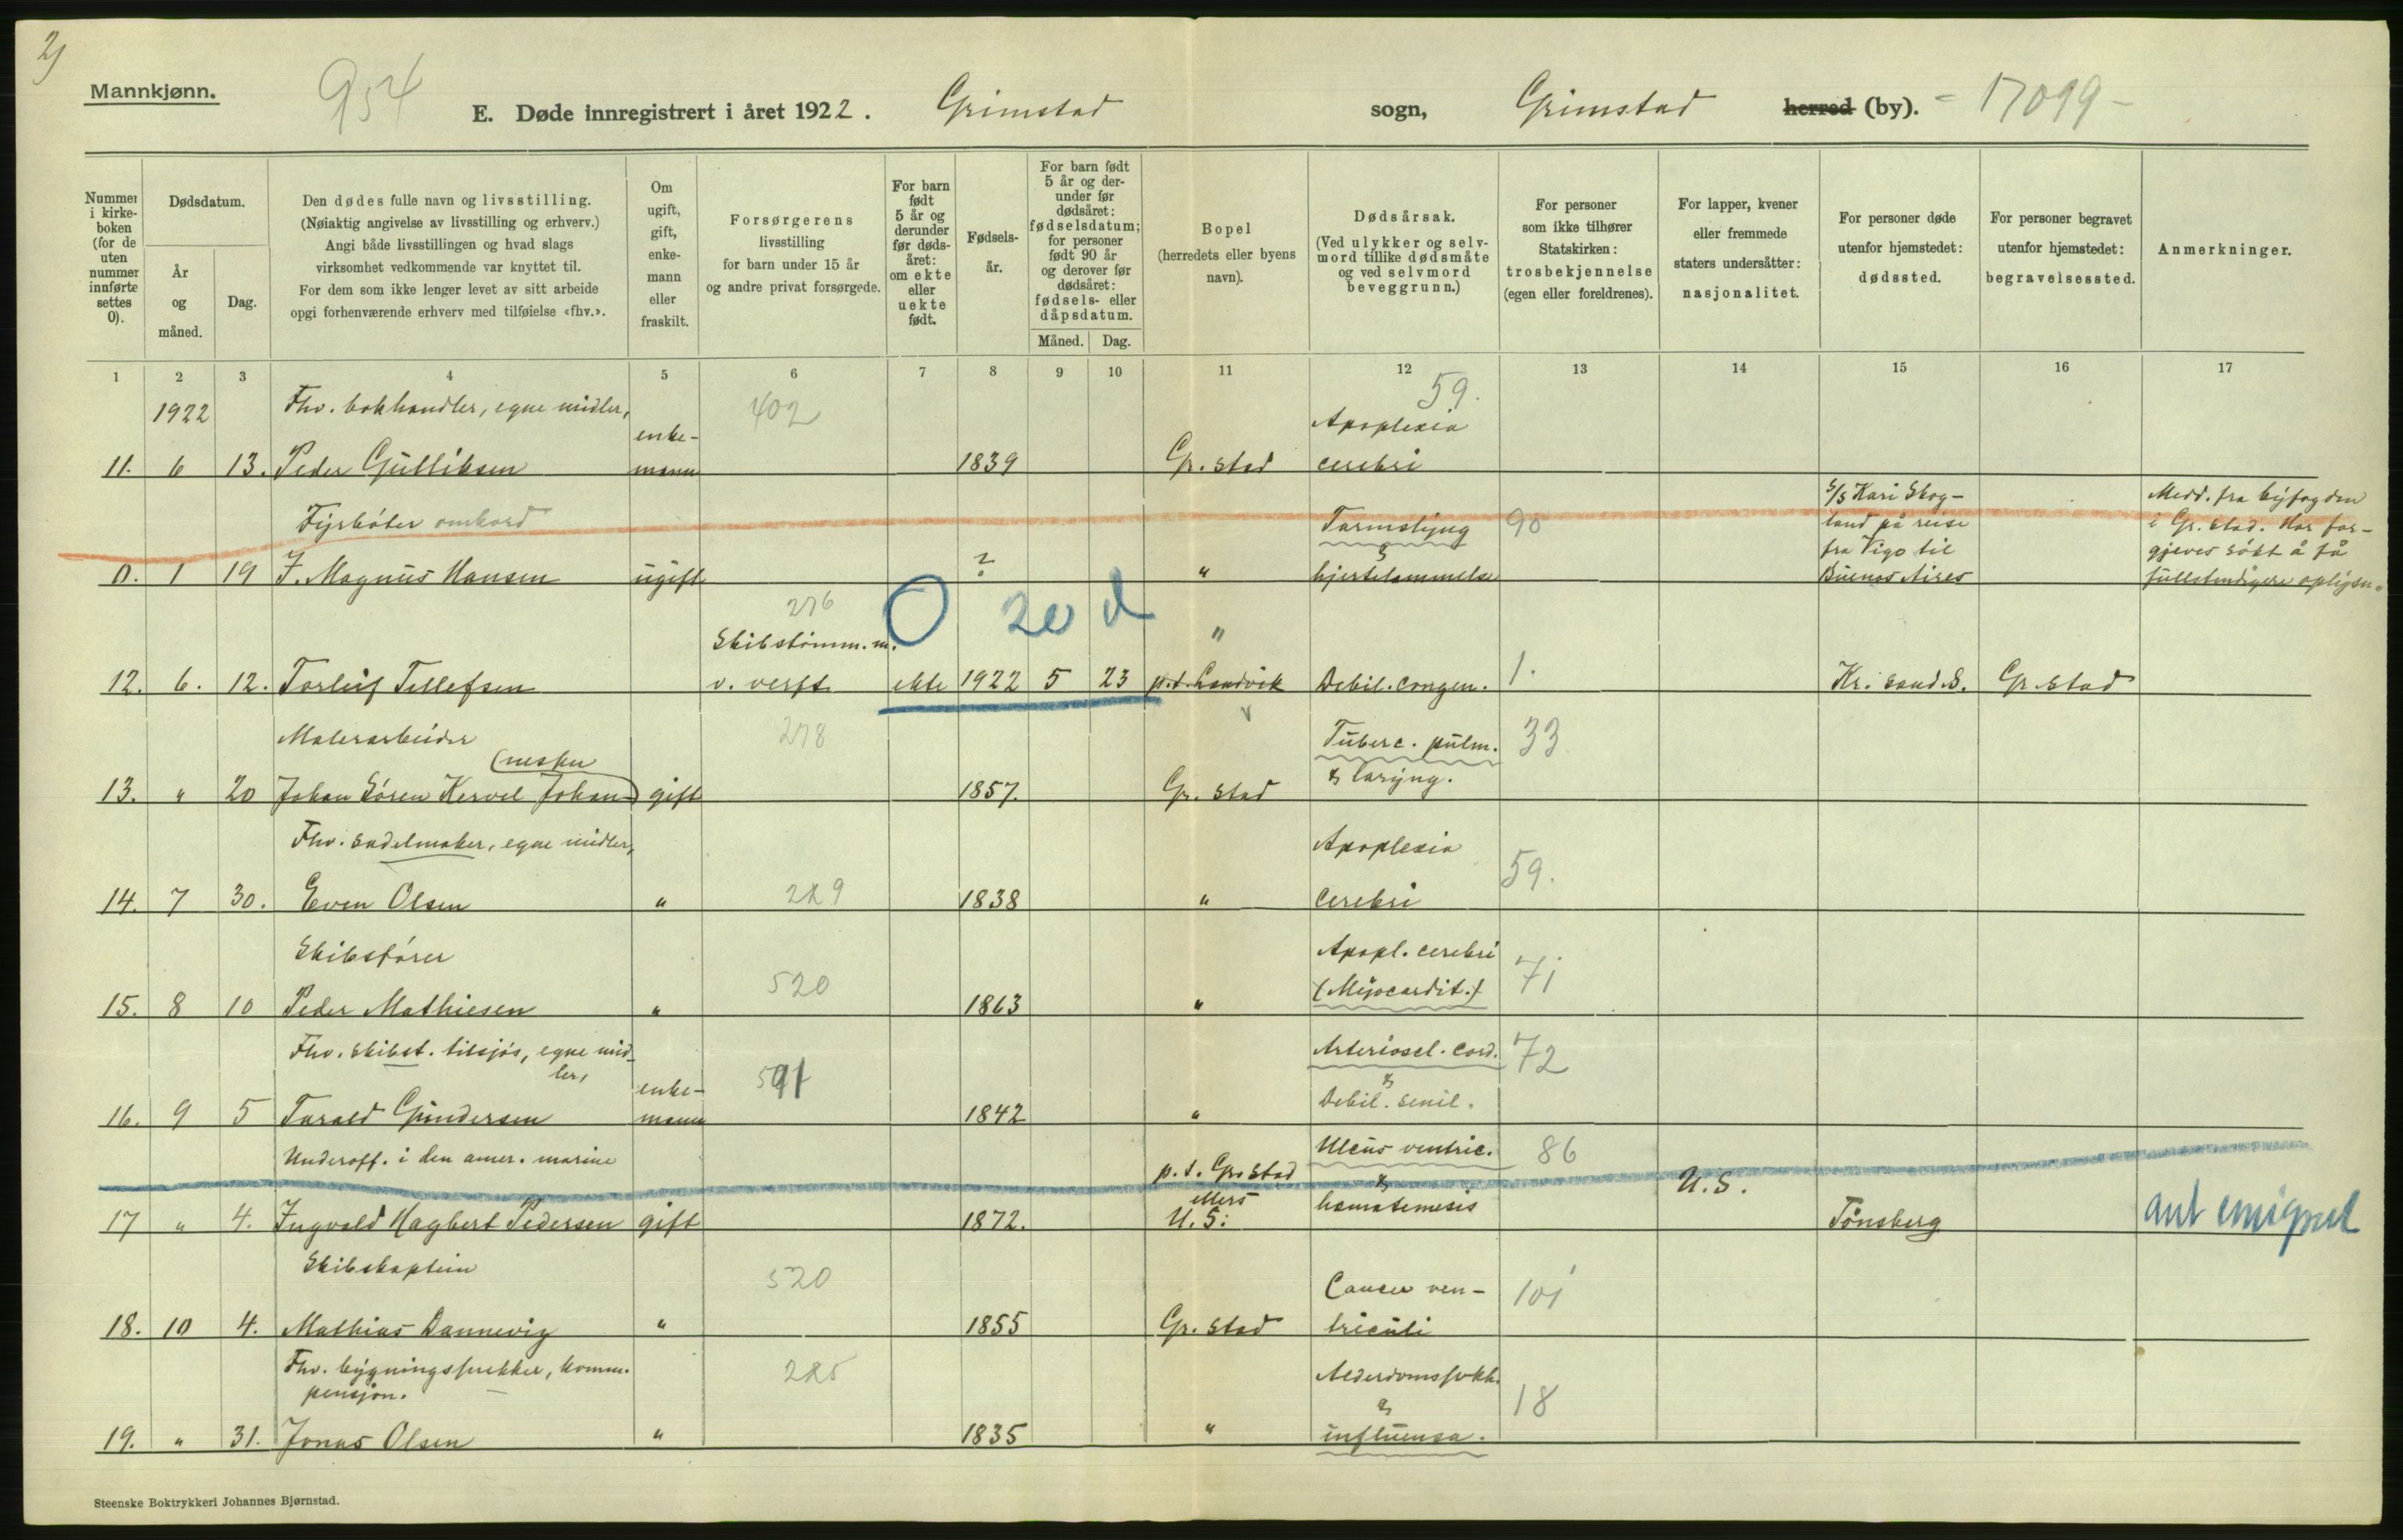 2)
Mannkjønn.
954
E. Døde innregistrert i året 1922. Grimstad sogn, Grimstad herred (by). - 17099 -
Nummer i kirkeboken (for de uten nummer innførte settes 0).
Dødsdatum.
År og måned.
Dag.
Den dødes fulle navn og livsstilling.
(Nøiaktig angivelse av livsstilling og erhverv.)
Angi både livsstillingen og hvad slags
virksomhet vedkommende var knyttet til.
For dem som ikke lenger levet av sitt arbeide
opgi forhenværende erhverv med tilføielse «fhv.».
Om ugift, gift, enkemann eller fraskilt.
Forsørgerens
livsstilling
for barn under 15 år
og andre privat forsørgede.
For barn født 5 år og derunder før dødsåret: om ekte eller uekte født.
Fødselsår.
For barn født 5 år og derunder før dødsåret: fødselsdatum; for personer født 90 år og derover før dødsåret: fødsels- eller dåpsdatum.
Måned. Dag.
Bopel
(herredets eller byens
navn).
Dødsårsak.
(Ved ulykker og selvmord tillike dødsmåte og ved selvmord beveggrunn.)
For personer
som ikke tilhører
Statskirken:
trosbekjennelse
(egen eller foreldrenes).
For lapper, kvener
eller fremmede
staters undersåtter:
nasjonalitet.
For personer døde
utenfor hjemstedet:
dødssted.
For personer begravet
utenfor hjemstedet:
begravelsessted.
Anmerkninger.
1 2 3 4 5 6 7 8 9 10 11 12 13 14 15 16 17
1922 Fhv. bokhandler, egne midler, 402 59.
enke- Apoplexia
11. 6 13. Peder Gulliksen mann 1839 Gr.stad cerebri
Fyrbøter ombord Tarmslyng 90 S/S Kari Skog- Medd. fra byfogden
& land på reise i Gr.stad. Har for-
fra Vigo til gjeves søkt å få
0. 1 19 J. Magnus Hansen ugift ? " hjertelammelse Buenos Aires fullstendigere oplysn.
276 0 20 d
Skibstømm.m. "
12. 6. 12. Torleif Tellefsen v. verft ekte 1922 5 23 p.t. Landvik Debil. congen. 1. Kr.sand S. Gr.stad
Malerarbeider 278 Tuberc. pulm. 33
(nespu
13. " 20 Johan Søren Kervel Johan) gift 1857. Gr.stad & laryng.
Fhv. sadelmaker, egne midler, Apoplexia
14. 7 30. Even Olsen " 229 1838 " Cerebri 59.
Skibsfører Apopl. cerebri
520 (Myocardit.) 71
15. 8 10 Peder Mathiesen " 1863 "
Fhv. skibst. tilsjøs, egne mid- Arterioscl. cord. 72
ler, enke- &
16. 9 5 Tarald Gundersen mann 1842 " Debil. senil.
Underoff. i den amer. marine Ulcus ventric. 86
p.t. Gr.stad & U.S.
ellers
17 " 4. Ingvald Hagbert Pedersen gift 1872. U.S: hæmatemesis Tönsberg ant emigrert
Skibskaptein 520 Cancer ven- 101
18. 10 4. Mathias Dannevig " 1855 Gr.stad triculi
Fhv. bygningssnekker, komm. Alderdomssvakh.
pensjon. & 18
19. " 31. Jonas Olsen " 1835 " influensa.
Steenske Boktrykkeri Johannes Bjørnstad.